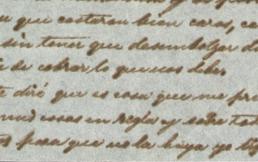 que costaran bien caros, ce
sin tener que desembolzar d
de cobrar lo que nos debe
diré que es cosa que me pre
cosas en regla y sobre to
para que no la haya yo